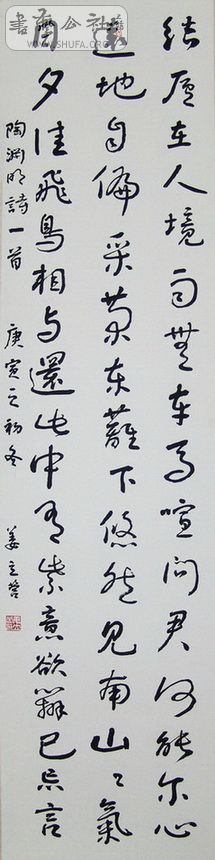 结庐在人境而无车马喧问君何能尔心
远地自偏采菊东篱下悠然见南山山气
日夕佳飞鸟相与还此中有真意欲辨已忘言
陶渊明诗一首 庚寅之初冬 姜立
書法公社
WWW.SHUFA.ORG